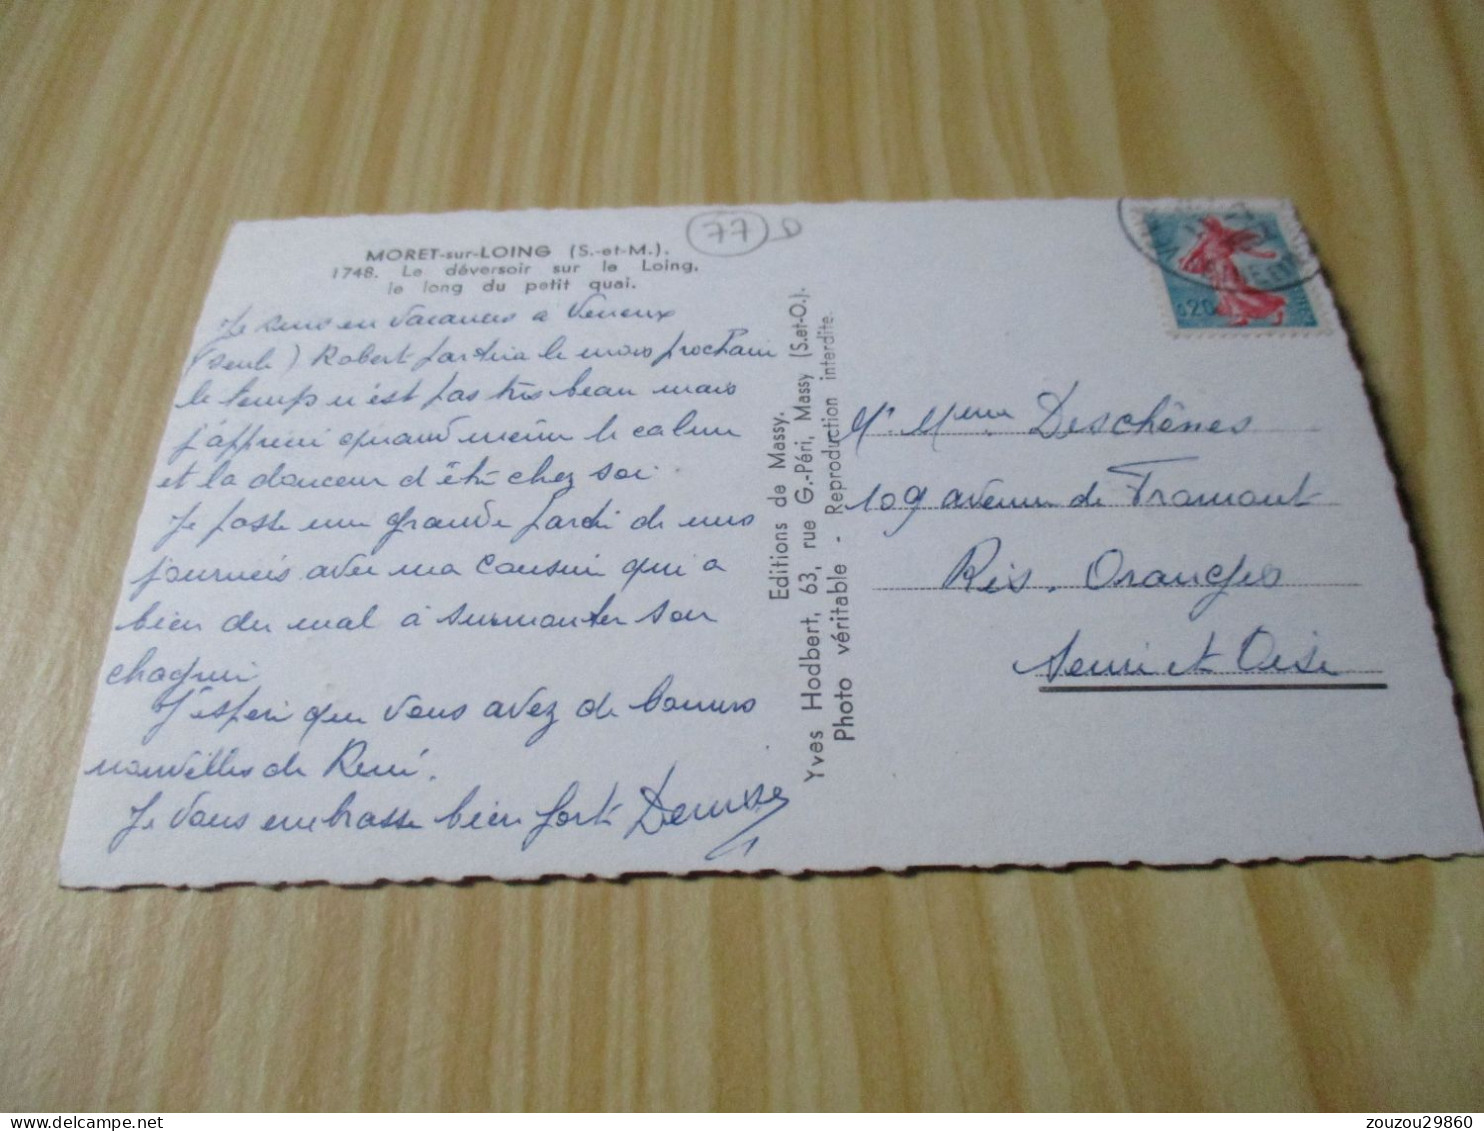 77
MORET-sur-LOING (S.-et-M.).
1748. Le déversoir sur le Loing,
le long du petit quai.
Je suis en vacances a Veneux
(seule) Robert partira le mois prochain
le temps n'est pas très beau mais
j'apprécie quand même le calme
et la douceur d'être chez soi.
Je passe une grande partie de mes
journées avec ma cousine qui a
bien du mal à surmonter son
chagrin
J'espère que vous avez de bonnes
nouvelles de René.
Je vous embrasse bien fort Denise
Editions de Massy.
Yves Hodbert, 63, rue G.-Péri, Massy (S.et-O.).
Photo véritable - Reproduction interdite.
0,20
Mr Mme Deschênes
109 avenue de Fromont
Ris. Orangis
Seine et Oise
zouzou29860